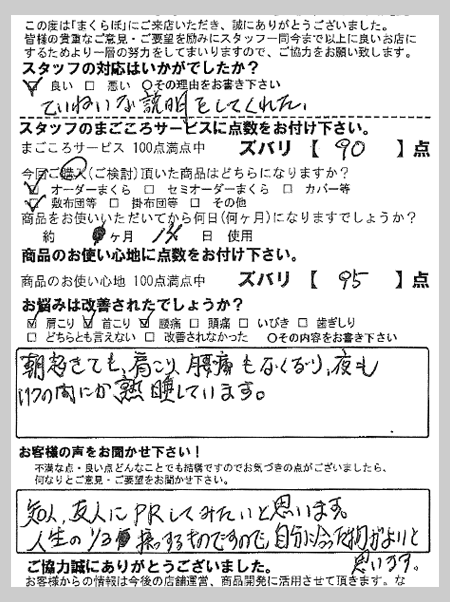 この度は「まくらぼ」にご来店いただき、誠にありがとうございました。
皆様の貴重なご意見・ご要望を励みにスタッフ一同今まで以上に良いお店に
するためより一層の努力をしてまいりますので、ご協力をお願い致します。
スタッフの対応はいかがでしたか？
☑ 良い □ 悪い ○その理由をお書き下さい
ていねいな説明をしてくれた。
スタッフのまごころサービスに点数をお付け下さい。
まごころサービス 100点満点中 ズバリ【 90 】点
今回ご購入(ご検討)頂いた商品はどちらになりますか？
☑ オーダーまくら □ セミオーダーまくら □ カバー等
☑ 敷布団等 □ 掛布団等 □ その他
商品をお使いいただいてから何日(何ヶ月)になりますでしょうか？
約 ヶ月 日 使用
商品のお使い心地に点数をお付け下さい。
商品のお使い心地 100点満点中 ズバリ【 95 】点
お悩みは改善されたでしょうか？
☑ 肩こり ☑ 首こり ☑ 腰痛 □ 頭痛 □ いびき □ 歯ぎしり
□ どちらとも言えない □ 改善されなかった ○その内容をお書き下さい
朝起きても、肩こり、腰痛もなくなり、夜も
いつの間にか熟睡しています。
お客様の声をお聞かせ下さい！
不満な点・良い点どんなことでも結構ですのでお気づきの点がございましたら、
何なりとご意見・ご要望をお聞かせ下さい。
知人、友人にPRしてみたいと思います。
人生の1/3 するものですので、自分に合った物がよいと
思います。
ご協力誠にありがとうございました。
お客様からの情報は今後の店舗運営、商品開発に活用させて頂きます。な